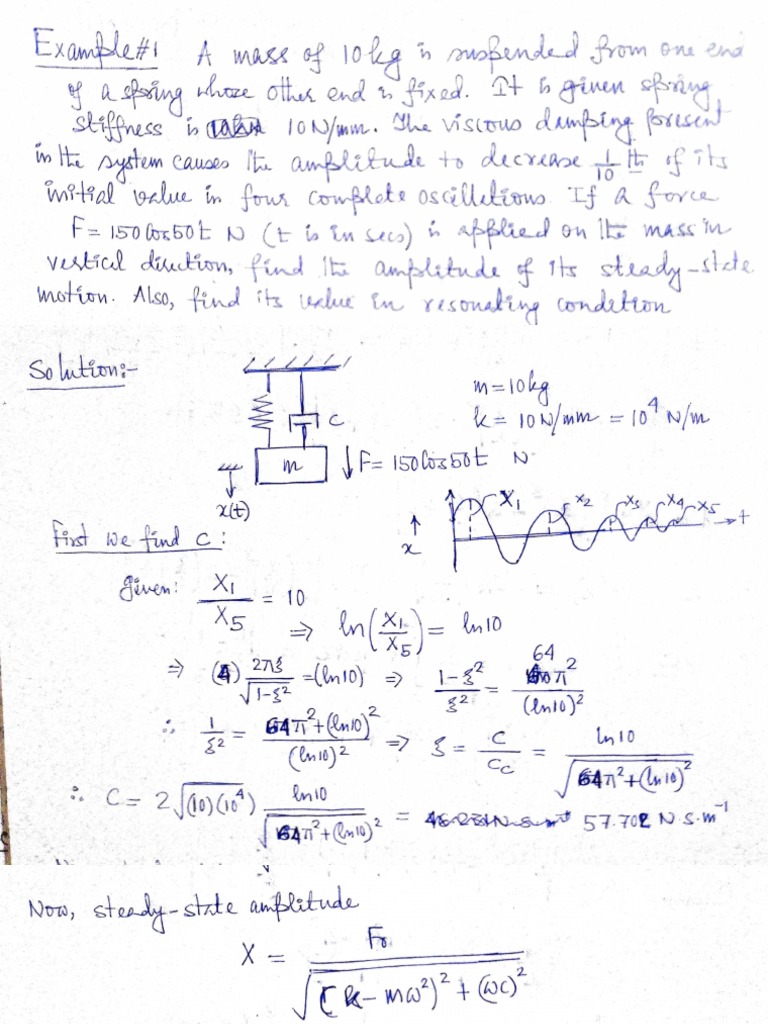 Example#1 A mass of 10kg is suspended from one end
of a spring whose other end is fixed. It is given spring
stiffness is 10N/mm. The viscous damping present
in the system causes the amplitude to decrease 1/10 th of its
initial value in four complete oscillations. If a force
F = 150Cos50t N (t is in secs) is applied on the mass in
vertical direction, find the amplitude of its steady-state
motion. Also, find its value in resonating condition
Solution:-
m=10kg
k= 10N/mm = 10⁴ N/m
C
m
F= 150Cos50t N
x(t)
X₁ X₂ X₃ X₄ X₅ t
x
First we find c:
given: X₁/X₅ = 10
⇒ ln(X₁/X₅) = ln10
⇒ (4) 2πξ/√(1-ξ²) = (ln10) ⇒ (1-ξ²)/ξ² = 64π²/(ln10)²
∴ 1/ξ² = (64π²+(ln10)²)/(ln10)² ⇒ ξ = C/Cc = ln10/√(64π²+(ln10)²)
∴ C = 2√((10)(10⁴)) ln10/√(64π²+(ln10)²) = 57.702 N.S.m⁻¹
Now, steady-state amplitude
X = F₀/√((k-mω²)²+(ωc)²)